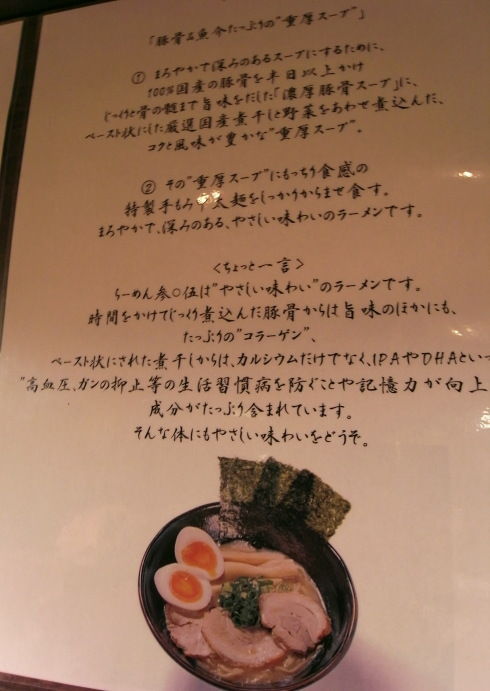 「豚骨&魚介たっぷりの"重厚スープ"」
① まろやかで深みのあるスープにするために、
100%国産の豚骨を半日以上かけ
じっくりと骨の髄まで旨味をだした「濃厚豚骨スープ」に、
ペースト状にした厳選国産煮干しと野菜をあわせ煮込んだ、
コクと風味が豊かな"重厚スープ"。
② その"重厚スープ"にもっちり食感の
特製手もみ中太麺をしっかりからませ食す。
まろやかで、深みのある、やさしい味わいのラーメンです。
<ちょっと一言>
らーめん参〇伍は"やさしい味わい"のラーメンです。
時間をかけてじっくり煮込んだ豚骨からは旨味のほかにも、
たっぷりの"コラーゲン"、
ペースト状にされた煮干しからは、カルシウムだけでなく、IPAやDHAといっ
"高血圧、ガンの抑止等の生活習慣病を防ぐことや記憶力が向上
成分がたっぷり含まれています。
そんな体にもやさしい味わいをどうぞ。